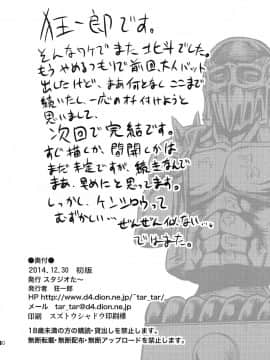 狂一郎です。
そんなワケでまた北斗でした。
もうやめるつもりで前回、大人バット
出したけど、まあ何となくここまで
続いたし、一応のオチ付けようと
思いまして、
次回で完結です。
すぐ描くか、間開くかは
まだ未定ですが、続きなんで
まあ、早めにと思ってます。
しっかし、ケンシロウって
むずかしい… ぜんぜん似ない…
ではまた。
●奥付●
2014.12.30 初版
発行 スタジオた〜
発行者 狂一郎
HP http://www.d4.dion.ne.jp/~tar_tar/
メール tar_tar@d4.dion.ne.jp
印刷 スズトウシャドウ印刷様
18歳未満の方の購読・貸出しを禁止します。
無断転載・無断配布・無断アップロードを禁止します。